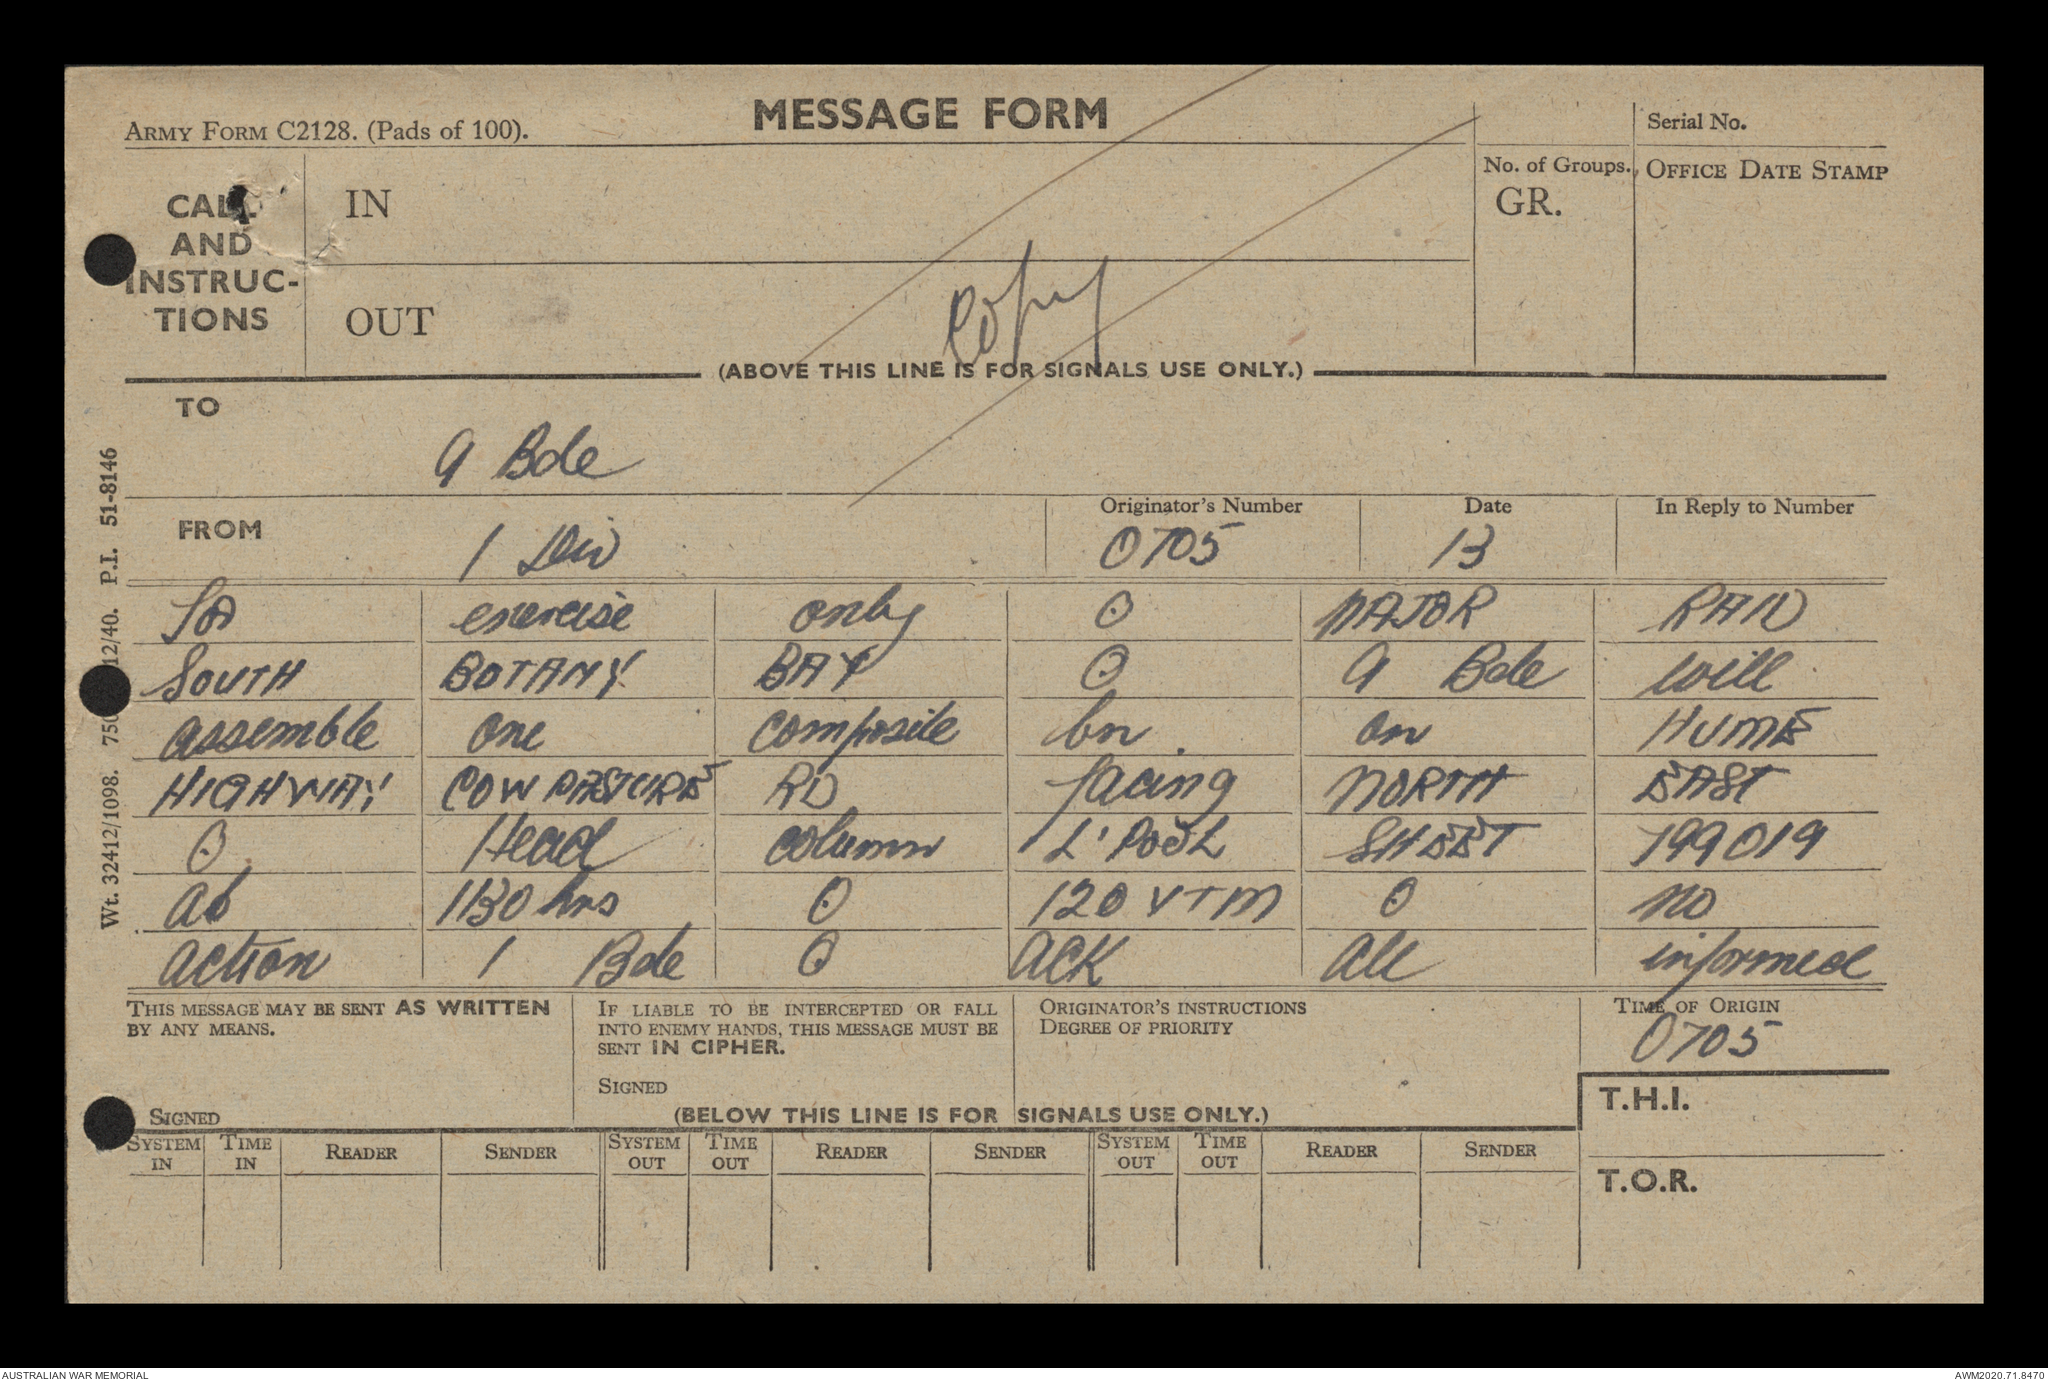 MESSAGE FORM
ARMY FORM C2128. (Pads of 100).
Serial No.
CALL AND INSTRUC-TIONS
IN
No. of Groups.
GR.
OFFICE DATE STAMP
OUT
Copy
(ABOVE THIS LINE IS FOR SIGNALS USE ONLY.)
TO
9 Bde
FROM
1 Div
Originator's Number
0705
Date
13
In Reply to Number
for exercise only O MAJOR RAID
SOUTH BOTANY BAY O 9 Bde will
assemble one composite bn. on HUME
HIGHWAY COWPASTURE RD facing NORTH EAST
O Head column L'POOL SHEET 799019
at 1130 hrs O 120 VTM O no
action 1 Bde O ACK all informed
THIS MESSAGE MAY BE SENT AS WRITTEN
BY ANY MEANS.
SIGNED
IF LIABLE TO BE INTERCEPTED OR FALL
INTO ENEMY HANDS, THIS MESSAGE MUST BE
SENT IN CIPHER.
SIGNED
ORIGINATOR'S INSTRUCTIONS
DEGREE OF PRIORITY
TIME OF ORIGIN
0705
(BELOW THIS LINE IS FOR SIGNALS USE ONLY.)
T.H.I.
SYSTEM IN TIME IN READER SENDER SYSTEM OUT TIME OUT READER SENDER SYSTEM OUT TIME OUT READER SENDER
T.O.R.
Wt. 32412/1098. 750 12/40. P.I. 51-8146
AUSTRALIAN WAR MEMORIAL
AWM2020.71.8470